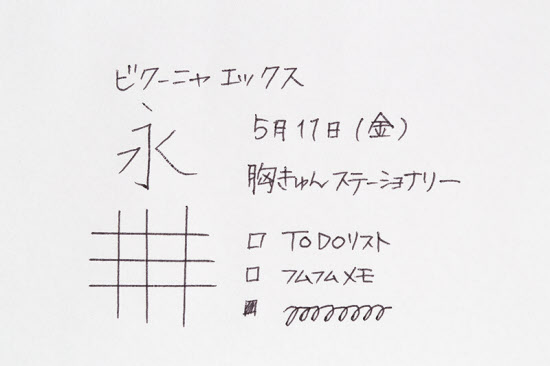 ビクーニャ エックス
永
5月17日(金)
胸きゅんステーショナリー
□ TODOリスト
□ フムフムメモ
■